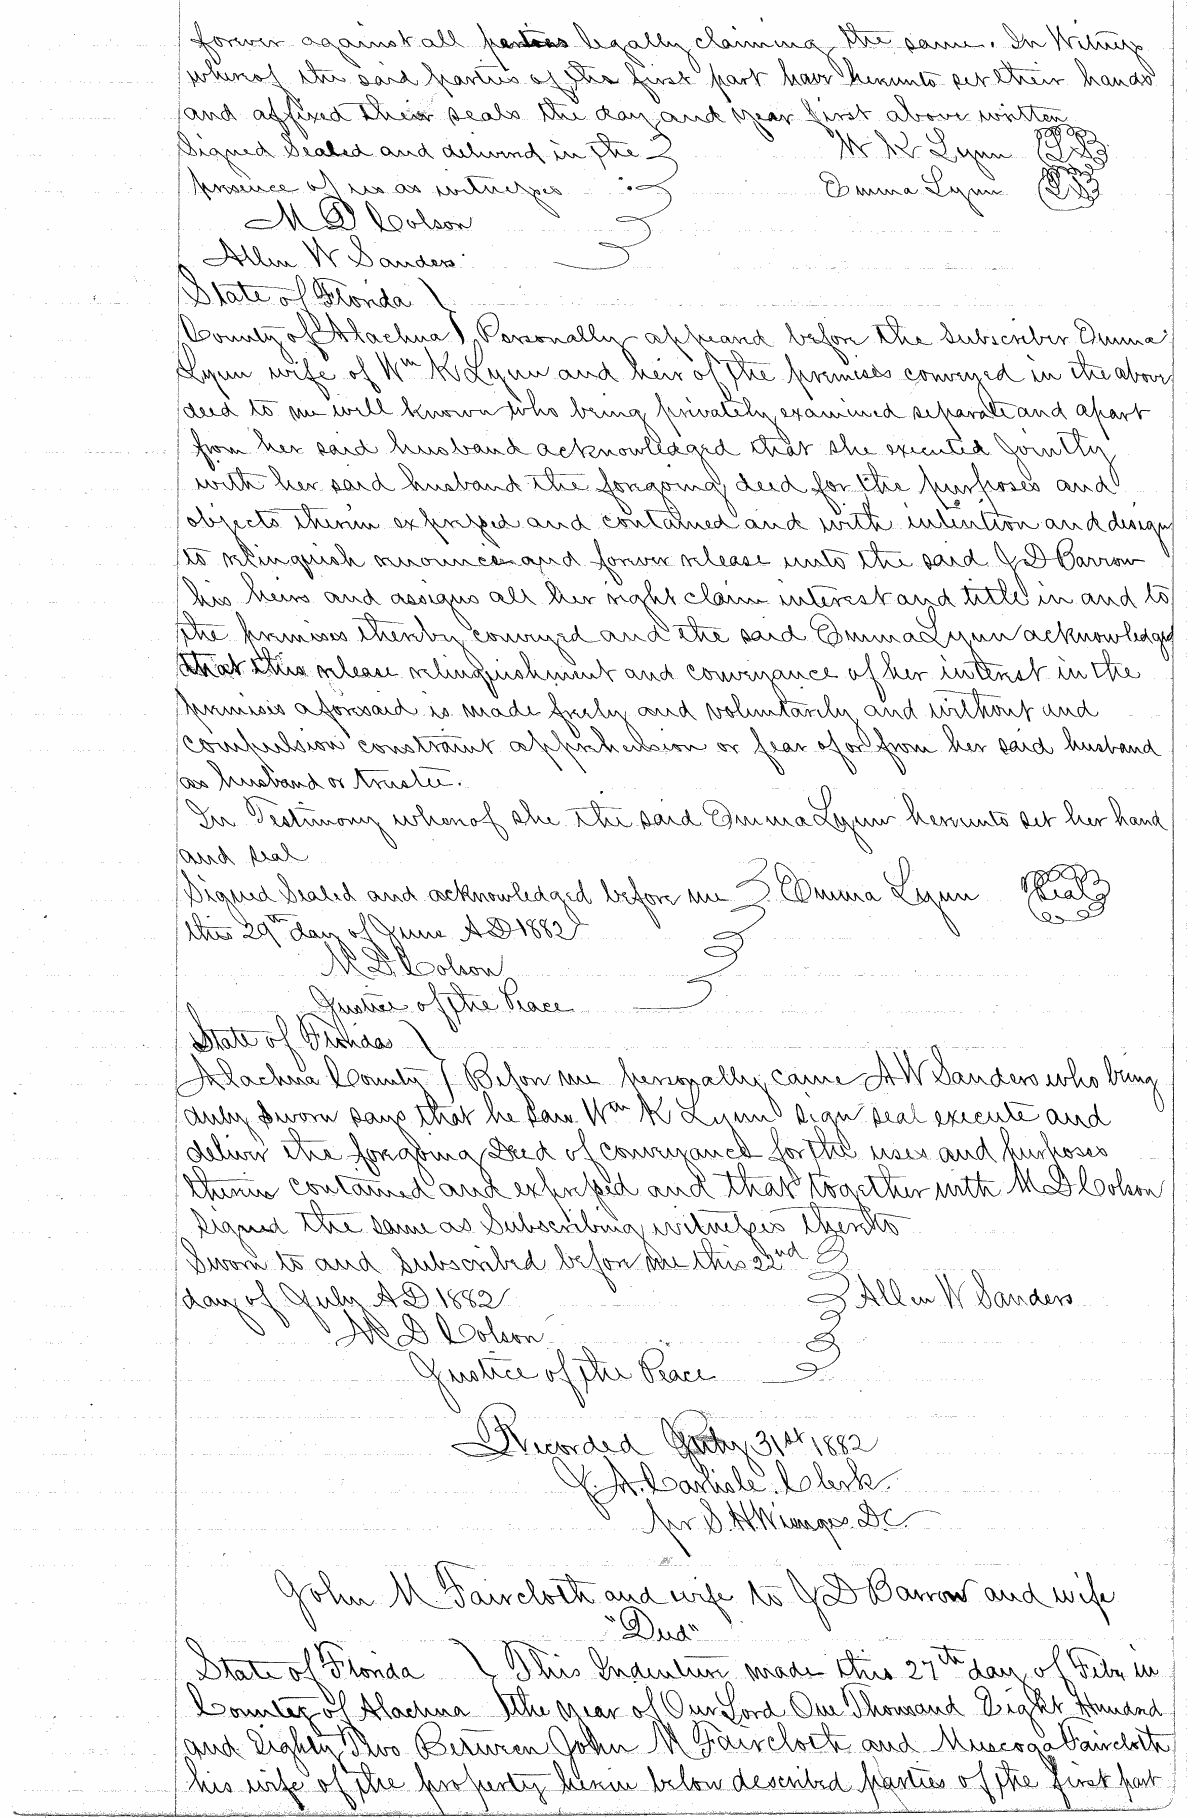 forever against all parties legally claiming the same. In Witness
whereof the said parties of the first part have hereunto set their hands
and affixed their seals the day and year first above written
Signed Sealed and delivered in the W K Lynn
presence of us as witnesses Emma Lynn
M D Colson
Allen W Sanders
State of Florida
County of Alachua } Personally appeared before the Subscriber Emma
Lynn wife of Wm K Lynn and heir of the premises conveyed in the above
deed to me well known who being privately examined separate and apart
from her said husband acknowledged that she executed jointly
with her said husband the foregoing deed for the purposes and
objects therein expressed and contained and with intention and design
to relinquish renounce and forever release unto the said J D Barrow
his heirs and assigns all her right claim interest and title in and to
the premises thereby conveyed and the said Emma Lynn acknowledges
that this release relinquishment and conveyance of her interest in the
premises aforesaid is made freely and voluntarily and without and
compulsion constraint apprehension or fear of or from her said husband
as husband or trustee.
In Testimony whereof she the said Emma Lynn hereunto set her hand
and seal
Signed Sealed and acknowledged before me Emma Lynn Seal
this 29th day of June A D 1882
M D Colson
Justice of the Peace
State of Florida
Alachua County } Before me personally came A W Sanders who being
duly sworn says that he saw Wm K Lynn sign seal execute and
deliver the foregoing Deed of conveyance for the uses and purposes
therein contained and expressed and that together with M D Colson
signed the same as Subscribing witnesses thereto
Sworn to and Subscribed before me this 22nd
day of July A D 1882 Allen W Sanders
M D Colson
Justice of the Peace
Recorded July 31st 1882
J. A. Carlisle. Clerk.
pr S. H. Wienges. D.C.
John M Faircloth and wife to J D Barrow and wife
"Deed"
State of Florida } This Indenture made this 27th day of Feby in
County of Alachua } the year of Our Lord One Thousand Eight Hundred
and Eighty Two Between John M Faircloth and Muscoga Faircloth
his wife of the property herein below described parties of the first part